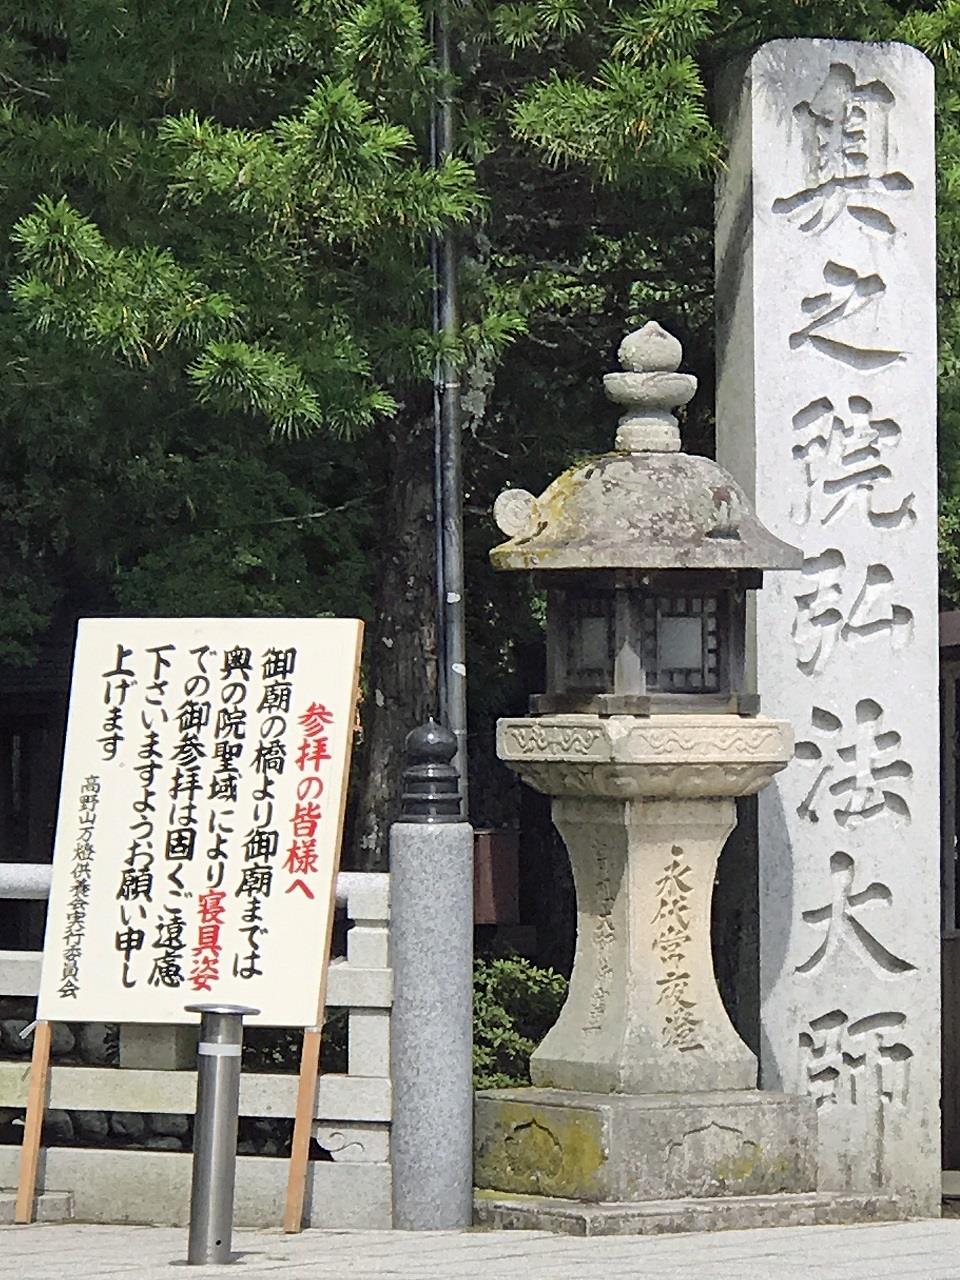 奥之院弘法大師
永代常夜燈
参拝の皆様へ
御廟の橋より御廟までは
奥の院聖域により寝具姿
での御参拝は固くご遠慮
下さいますようお願い申し
上げます
高野山万燈供養会実行委員会